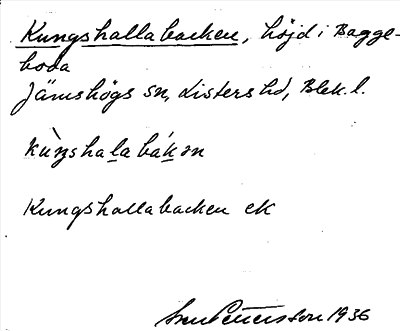 Kungshallabacken, höjd i Bagge-
boda
Jämshögs sn, Listers hd, Blek. l.
kùŋshalabákən
Kungshallabacken ek
Sven Pettersson 1936